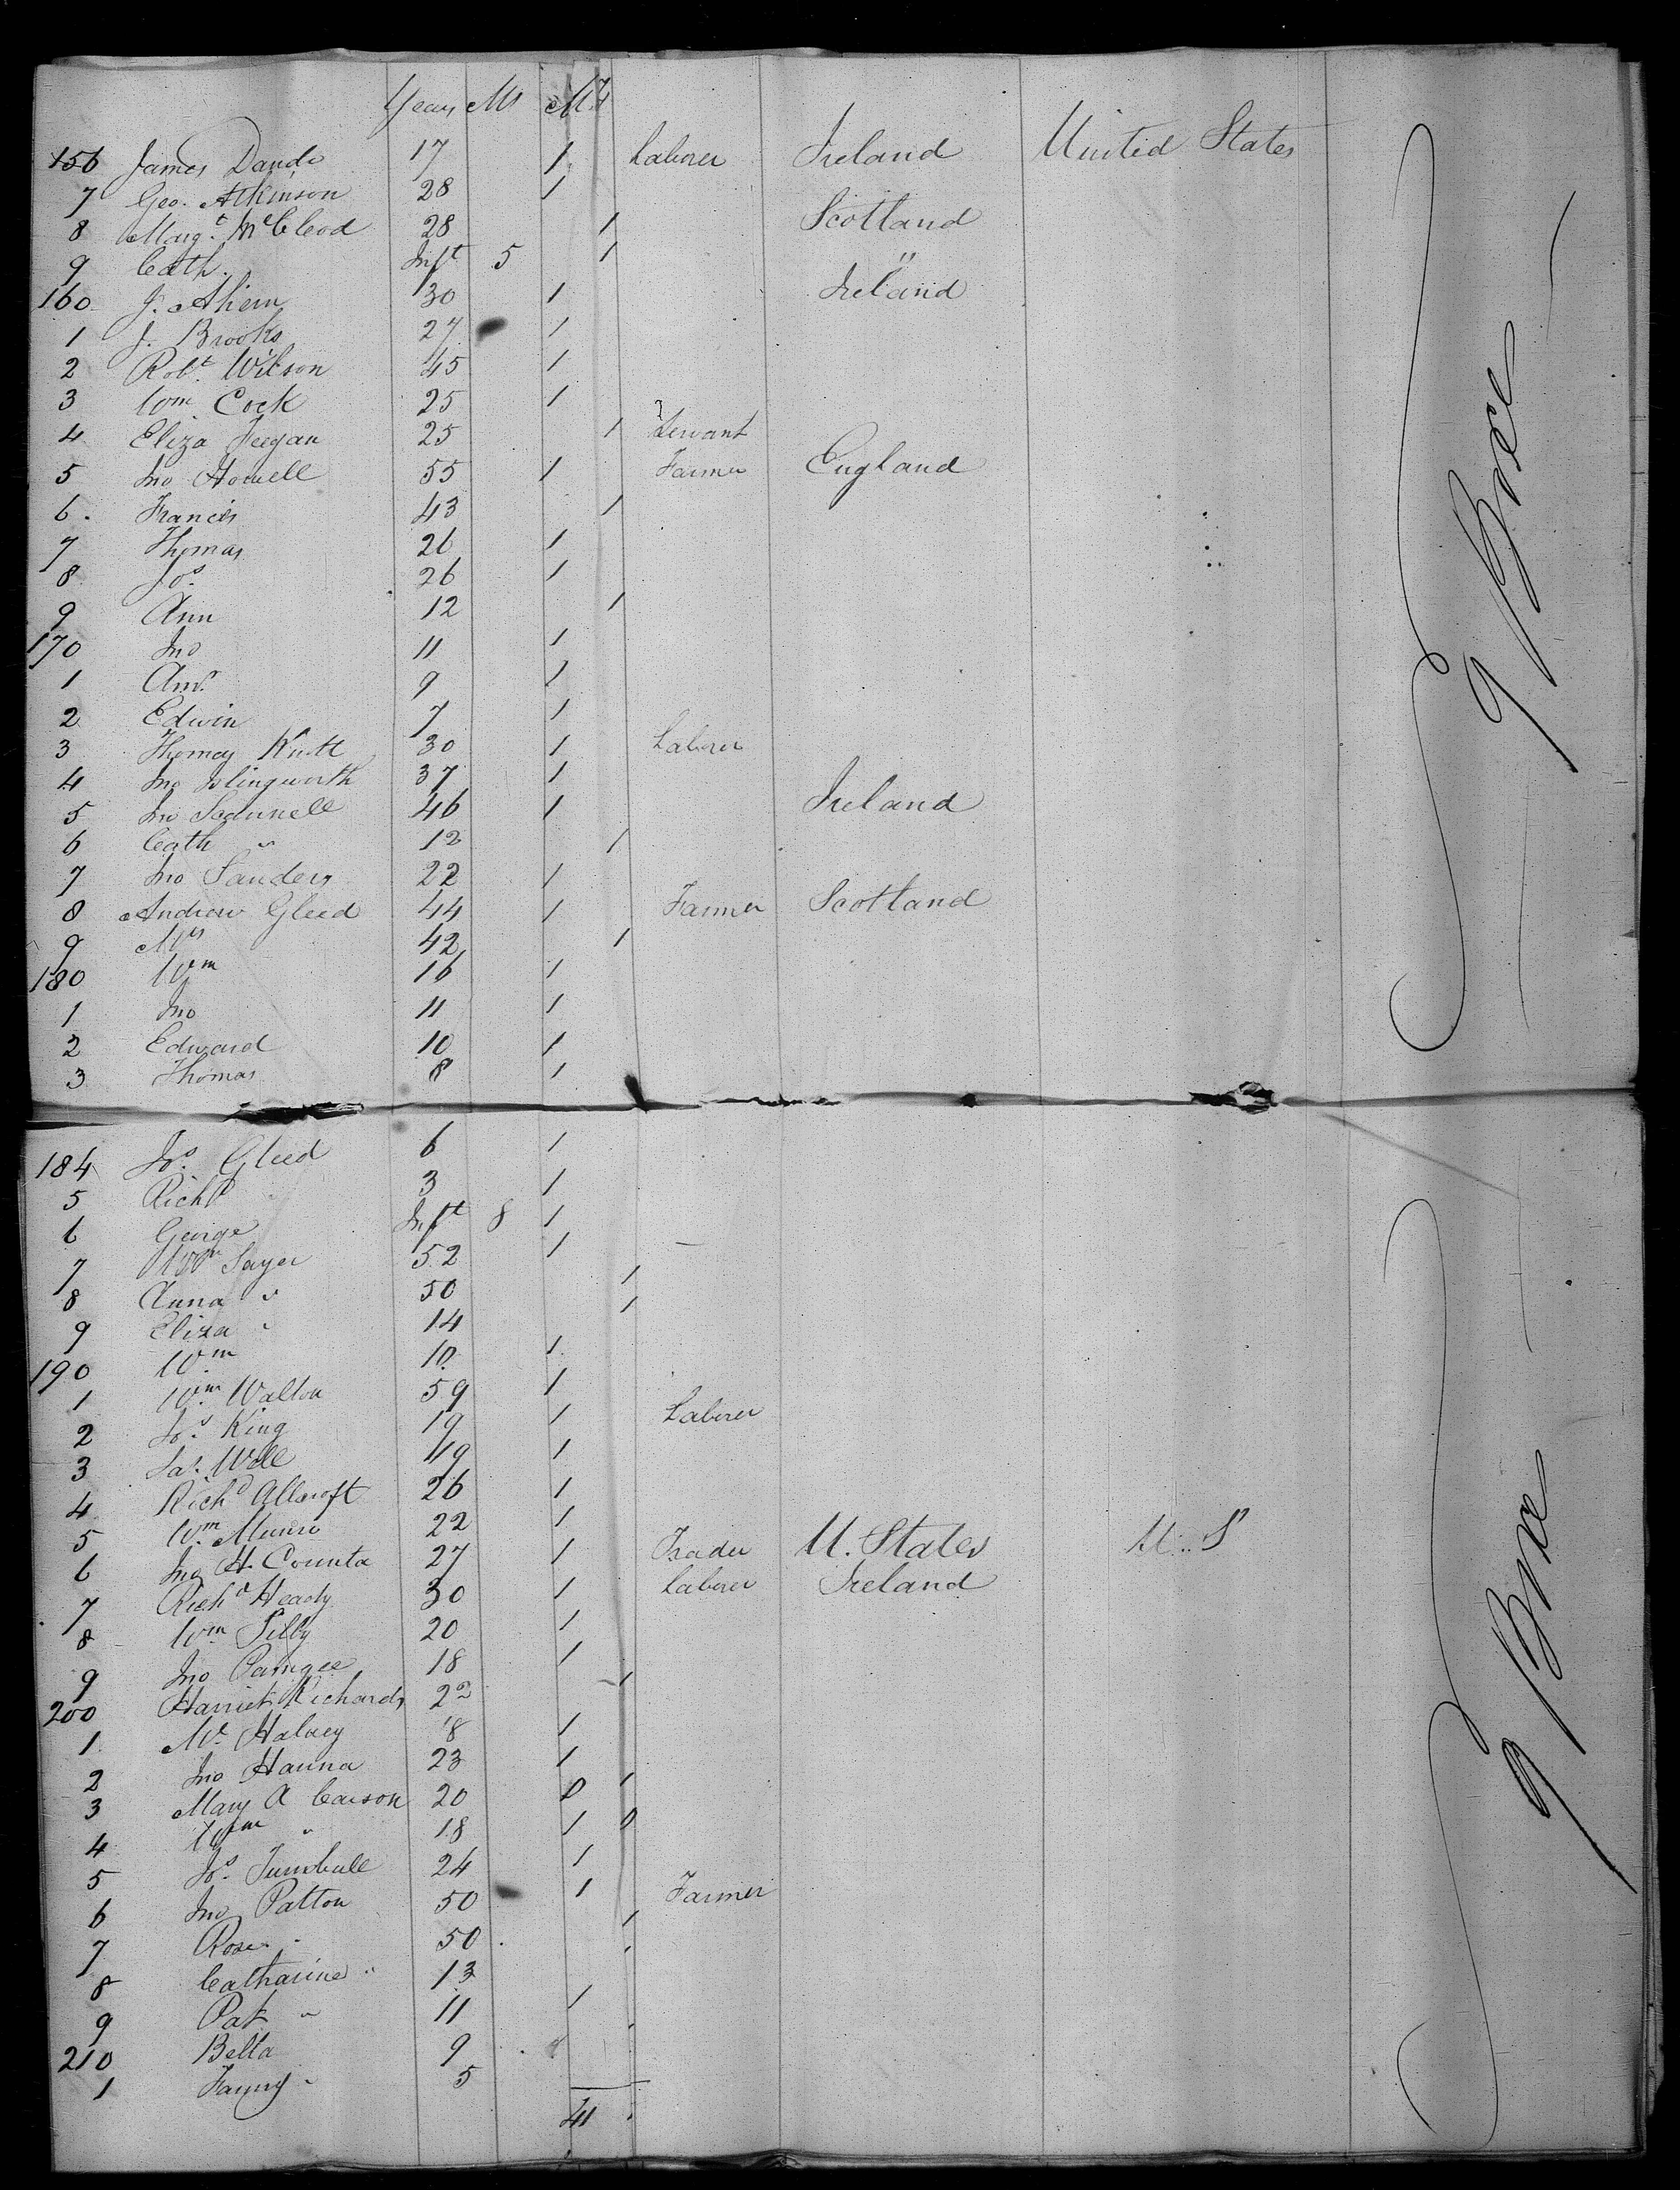 Years Ms M. F
156 James Dando 17 1 Laborer Ireland United States
7 Geo. Atkinson 28 1
8 Marg.t McCleod 28 1 Scotland
9 Cath. Inft 5 1 "
160 J. Ahern 30 1 Ireland
1 J. Brooks 27 1
2 Robt. Wilson 45 1
3 Wm Cock 25 1
4 Eliza Feegan 25 1 Servant
5 Jno Howell 55 1 Farmer England
6. Francis 43 1
7 Thomas 26 1
8 Jos. 26 1
9 Ann 12 1
170 Jno 11 1
1 9 1
2 Edwin 7 1
3 Thomas Knott 30 1 Laborer
4 Jno Islingworth 37 1
5 Jno 46 1 Ireland
6 Cath " 12 1
7 Jno Sanders 22 1
8 Andrew Gleed 44 1 Farmer Scotland
9 Mrs 42 1
180 Wm 16 1
1 Jno 11 1
2 Edward 10 1
3 Thomas 8 1
184 Jos. Gleed 6 1
5 Richd 3 1
6 George Inft 8 1
7 Wm Sayer 52 1
8 Anna " 50 1
9 Eliza " 14 1
190 Wm 10 1
1 Wm Walton 59 1
2 Jos. King 19 1 Laborer
3 Jas. Will 19 1
4 Richd Allcroft 26 1
5 Wm Munro 22 1
6 Jno H. Counta 27 1 Trader U. States U. S
7 Richd Heady 30 1 Laborer Ireland
8 Wm Silly 20 1
9 Jno 18 1
200 Harriet Richards 22 1
1 Halvey 18 1
2 Jno Hanna 23 1
3 Mary A Carson 20 0 1
4 Wm " 18 1 0
5 Jos. Turnbull 24 1
6 Jno Patton 50 1 Farmer
7 Rose " 50 1
8 Catharine " 13
9 Pat " 11 1
210 Bella 9
1 Fanny " 5
41